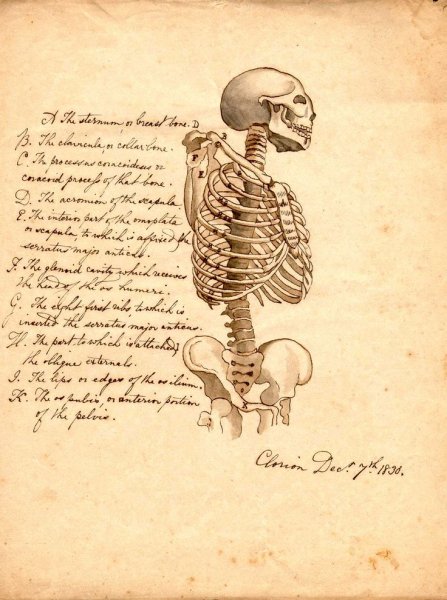 A The sternum, or breast bone.
B. The clavicula, or collar bone.
C. The processus coracoideus or
coracoid process of that bone.
D. The acromion of the scapula.
E. The interior part of the omoplata
or scapula, to which is affixed the
serratus major anticus.
F. The glenoid cavity which receives
the head of the os humeri.
G. The eight first ribs to which is
inserted the serratus major anticus.
H. The part to which is attached
the oblique externals.
I. The lips or edges of the os ilium.
K. The os pubis, or anterior portion
of the pelvis.
D
B
F
E
Dec. 7th 1830.